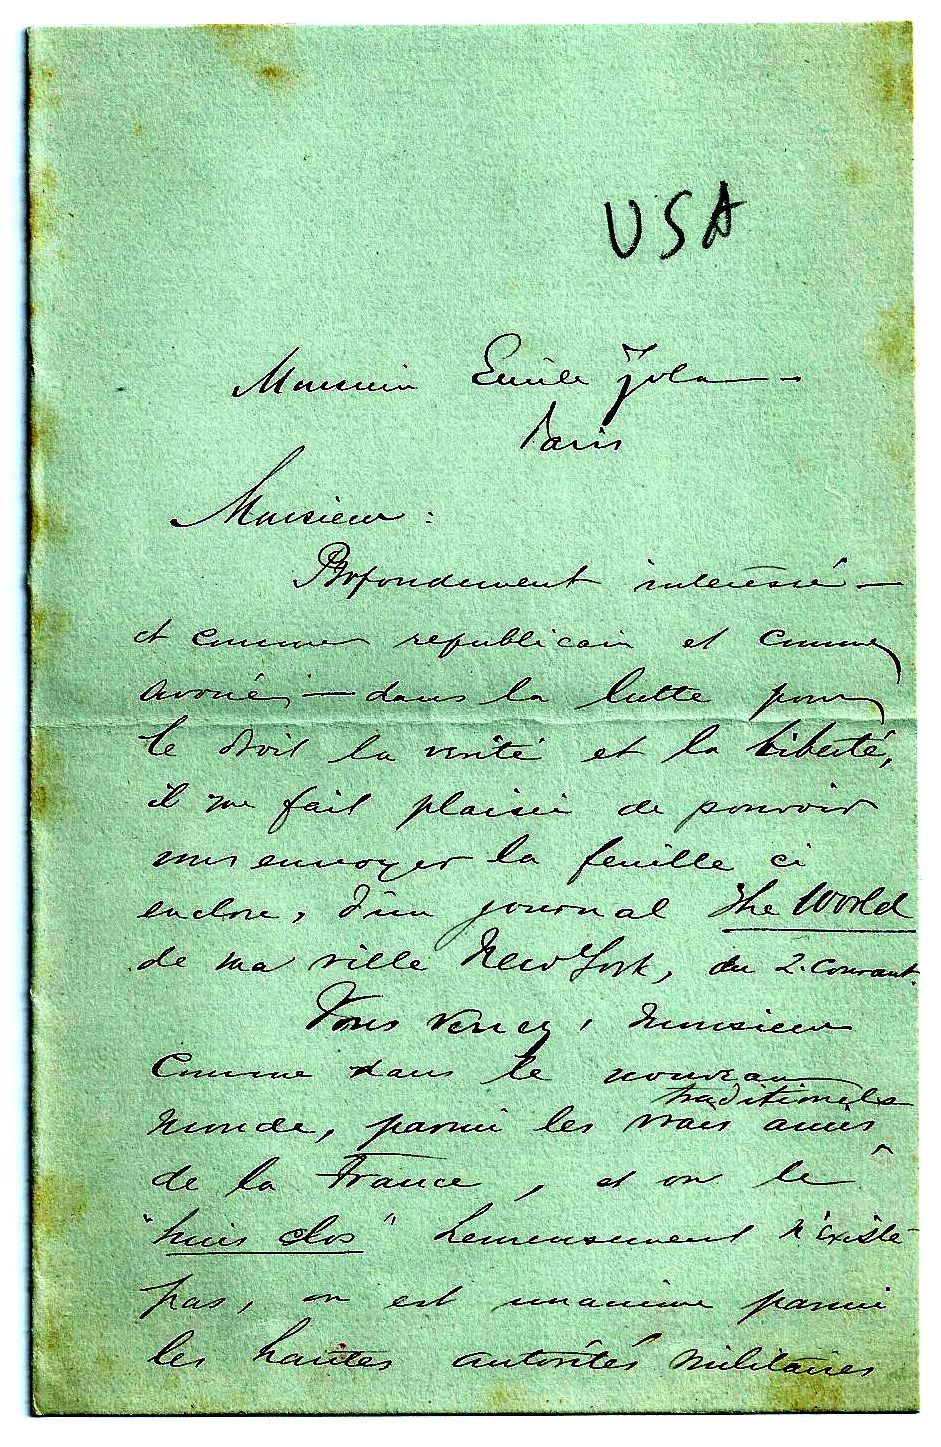 USA
Monsieur Emile Zola —
Paris
Monsieur :
Profondement interessé —
et comme republicain et comme
avoué — dans la lutte pour
le droit la verité et la liberté,
il me fait plaisir de pouvoir
vous envoyer la feuille ci
enclose, d'un journal The World
de ma ville New York, du 2. courant.
Vous verrez, Monsieur
comme dans le nouveau
monde, parmi les vrais amis
traditionels
de la France, et où le
"huis clos" heureusement n'existe
pas, on est unanime parmi
les hautes autorités militaires